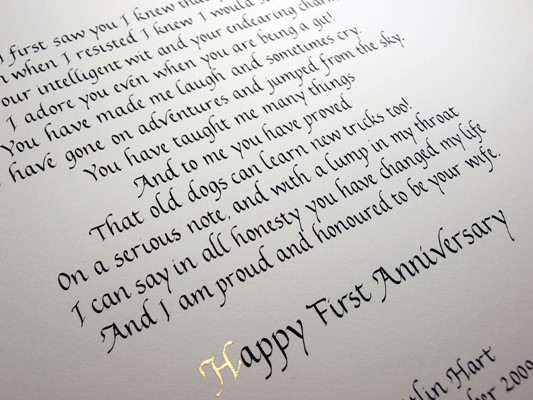 I first saw you I knew that
when I resisted I knew I would
our intelligent wit and your endearing charm
I adore you even when you are being a git!
You have made me laugh and sometimes cry.
have gone on adventures and jumped from the sky.
You have taught me many things
And to me you have proved
That old dogs can learn new tricks too!
On a serious note, and with a lump in my throat
I can say in all honesty you have changed my life
And I am proud and honoured to be your wife.
Happy First Anniversary
Hart
2009